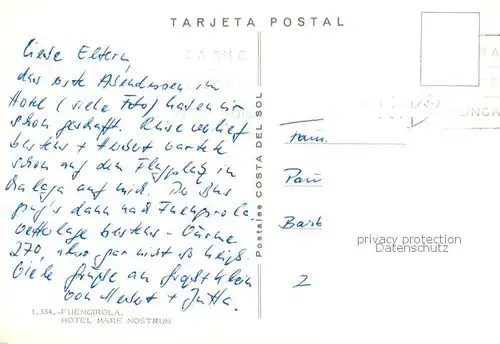 TARJETA POSTAL
Liebe Eltern,
das erste Abendessen im
Hotel (siehe Foto) haben wir
schon geschafft. Reise verlief
bestens + Herbert wartete
schon auf dem Flugplatz in
Malaga auf mich. Der Bus
ging's dann nach Fuengirola.
Wetterlage bestens - Wärme
270, aber gar nicht so heiß.
Viele Grüße an Groß + Klein
von Herbert + Jutta.
1.334.-FUENGIROLA.
HOTEL MARE NOSTRUM
Postales COSTA DEL SOL
Fam.
Paul
2
privacy protection
Datenschutz